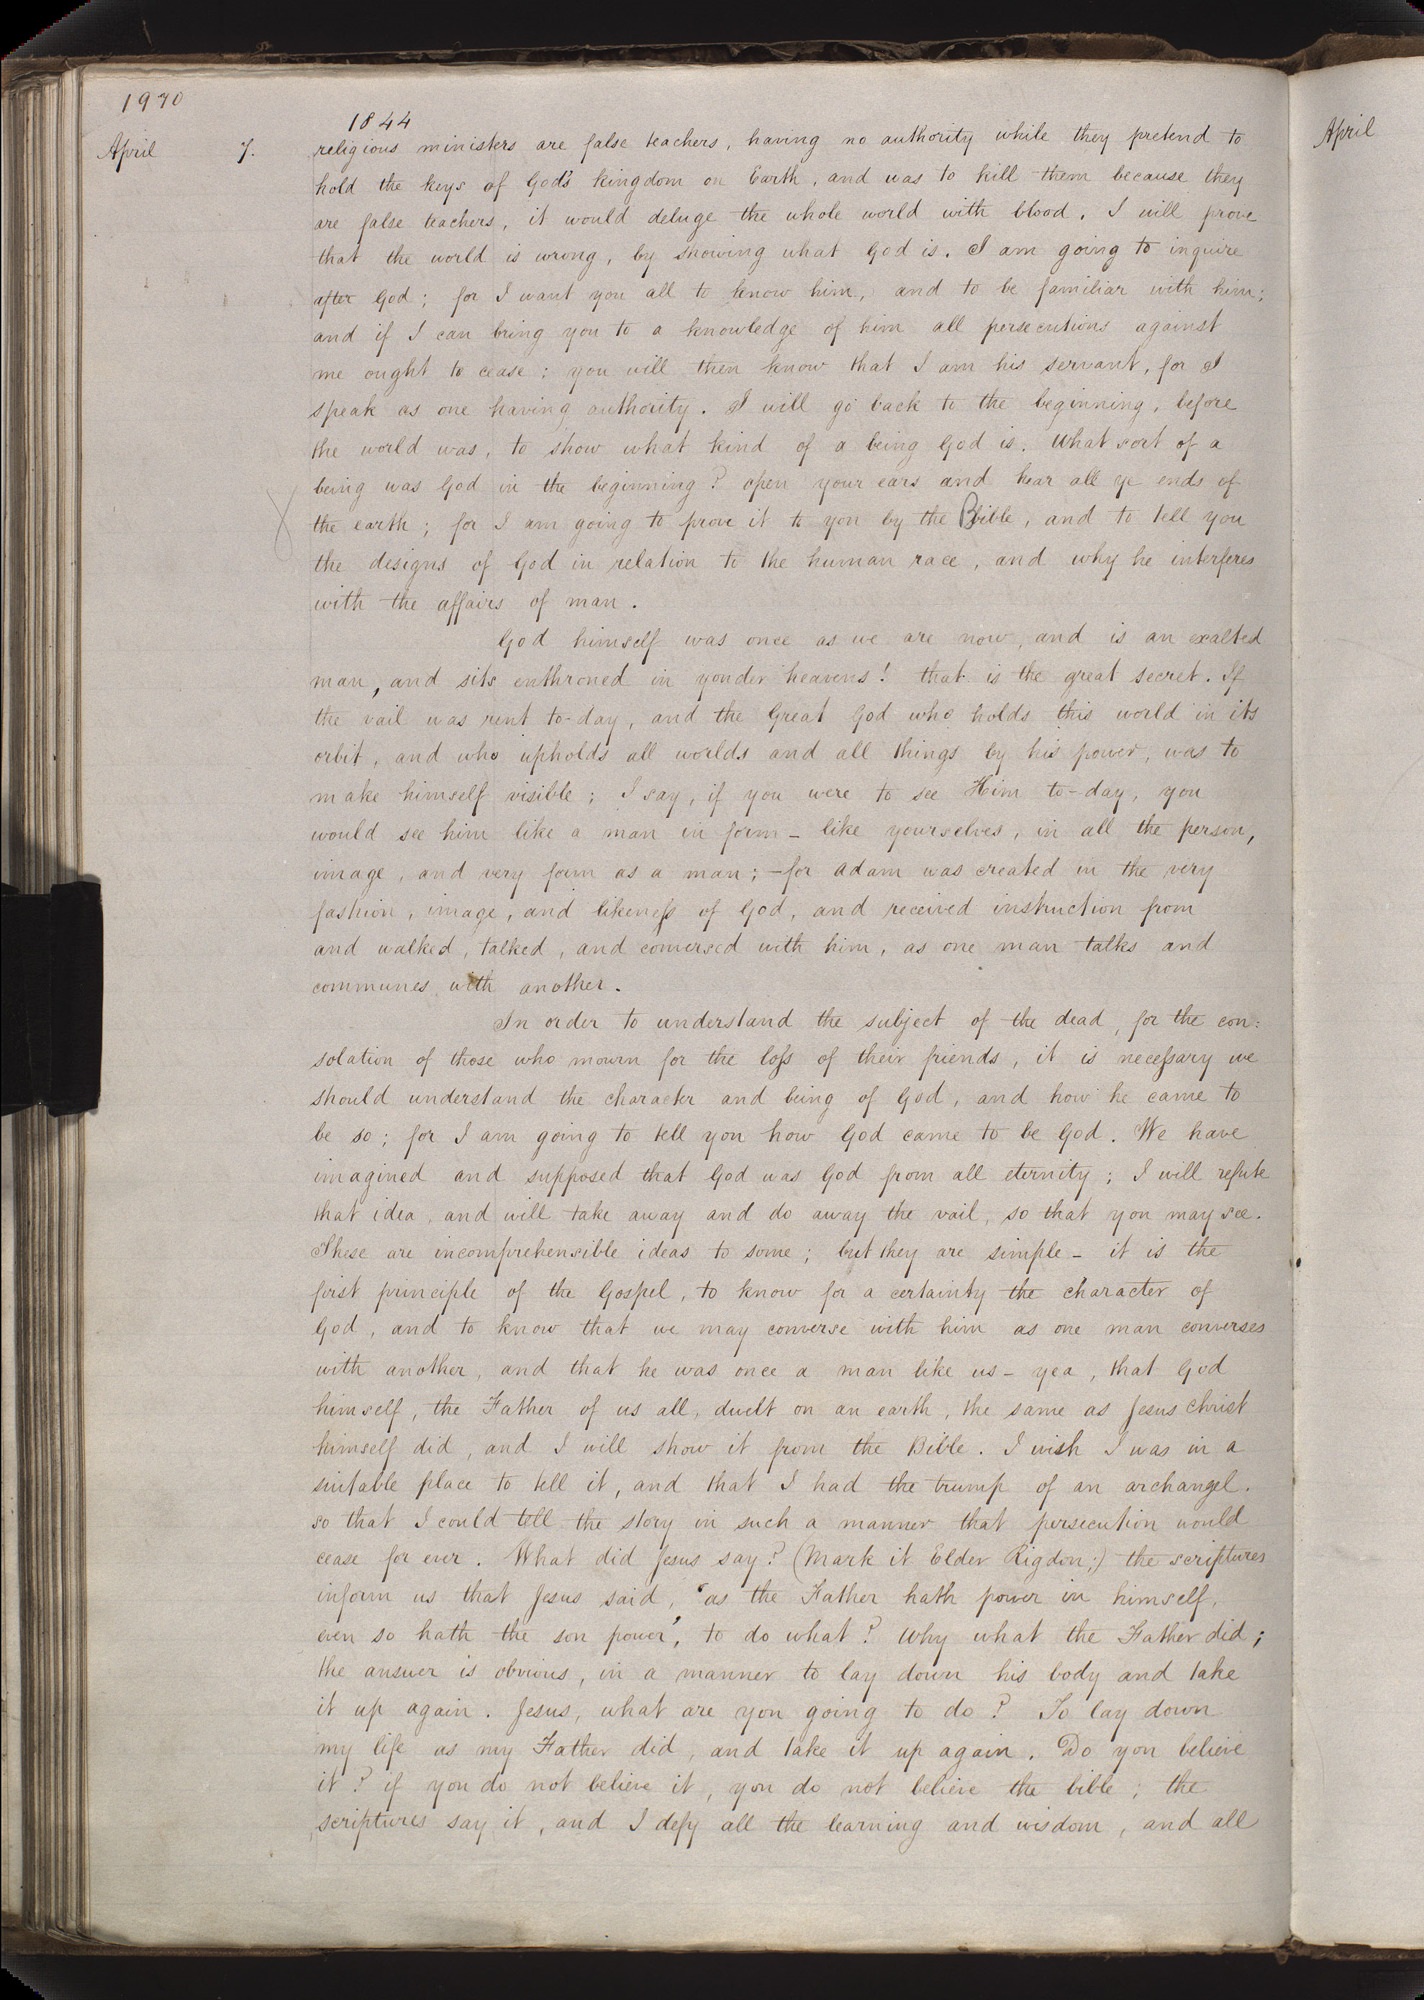 1970
1844
April 7. religious ministers are false teachers, having no authority while they pretend to
hold the keys of God's kingdom on Earth, and was to kill them because they
are false teachers, it would deluge the whole world with blood. I will prove
that the world is wrong, by showing what God is. I am going to inquire
after God; for I want you all to know him, and to be familiar with him;
and if I can bring you to a knowledge of him all persecutions against
me ought to cease: you will then know that I am his servant, for I
speak as one having authority. I will go back to the beginning, before
the world was, to show what kind of a being God is. What sort of a
being was God in the beginning? open your ears and hear all ye ends of
the earth; for I am going to prove it to you by the Bible, and to tell you
the designs of God in relation to the human race, and why he interferes
with the affairs of man.
God himself was once as we are now, and is an exalted
man, and sits enthroned in yonder heavens! that is the great secret. If
the vail was rent to-day, and the Great God who holds this world in its
orbit, and who upholds all worlds and all things by his power, was to
make himself visible; I say, if you were to see Him to-day, you
would see him like a man in form - like yourselves, in all the person,
image, and very form as a man; - for Adam was created in the very
fashion, image, and likeness of God, and received instruction from
and walked, talked, and conversed with him, as one man talks and
communes with another.
In order to understand the subject of the dead, for the con:
solation of those who mourn for the loss of their friends, it is necessary we
should understand the character and being of God, and how he came to
be so; for I am going to tell you how God came to be God. We have
imagined and supposed that God was God from all eternity; I will refute
that idea, and will take away and do away the vail, so that you may see.
These are incomprehensible ideas to some; but they are simple - it is the
first principle of the Gospel, to know for a certainty the character of
God, and to know that we may converse with him as one man converses
with another, and that he was once a man like us - yea, that God
himself, the Father of us all, dwelt on an earth, the same as Jesus Christ
himself did, and I will show it from the Bible. I wish I was in a
suitable place to tell it, and that I had the trump of an archangel.
so that I could tell the story in such a manner that persecution would
cease for ever. What did Jesus say? (Mark it Elder Rigdon;) the scriptures
inform us that Jesus said, "as the Father hath power in himself,
even so hath the son power", to do what? Why what the Father did;
the answer is obvious, in a manner to lay down his body and take
it up again. Jesus, what are you going to do? To lay down
my life as my Father did, and take it up again. Do you believe
it? if you do not believe it, you do not believe the bible; the
scriptures say it, and I defy all the learning and wisdom, and all
April